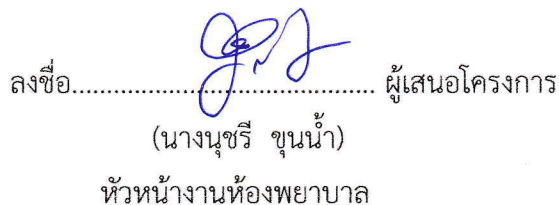 ลงชื่อ............................................ ผู้เสนอโครงการ
(นางนุชรี ขุนน้ำ)
หัวหน้างานห้องพยาบาล